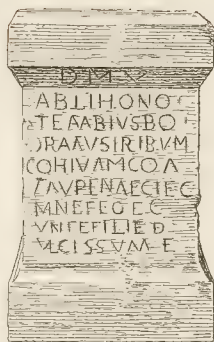 D M
ABLIHONO
TEAABIVSBO
ORAAVSIRIBVM
COHIVAMCOA
TAVPENAECIEC
M.NEFEOEC
VNIEFILIED
VLCISSVMÆ